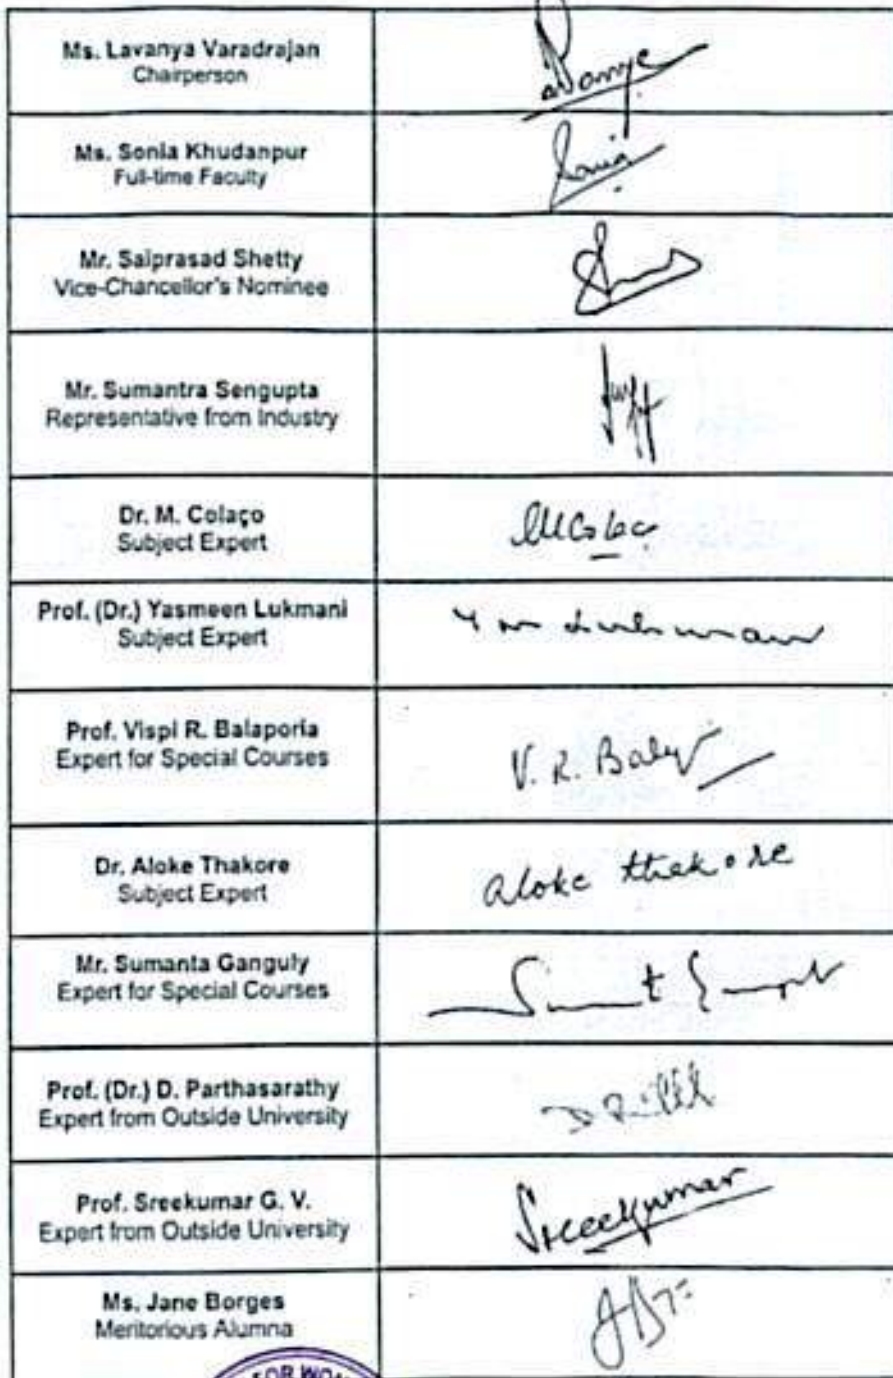 Ms. Lavanya Varadrajan
Chairperson
Ms. Sonia Khudanpur
Full-time Faculty
Sonia
Mr. Saiprasad Shetty
Vice-Chancellor's Nominee
Mr. Sumantra Sengupta
Representative from Industry
Dr. M. Colaço
Subject Expert
MColaço
Prof. (Dr.) Yasmeen Lukmani
Subject Expert
Prof. Vispi R. Balaporia
Expert for Special Courses
V. R.
Dr. Aloke Thakore
Subject Expert
aloke thakore
Mr. Sumanta Ganguly
Expert for Special Courses
Prof. (Dr.) D. Parthasarathy
Expert from Outside University
Prof. Sreekumar G. V.
Expert from Outside University
Sreekumar
Ms. Jane Borges
Meritorious Alumna
FOR